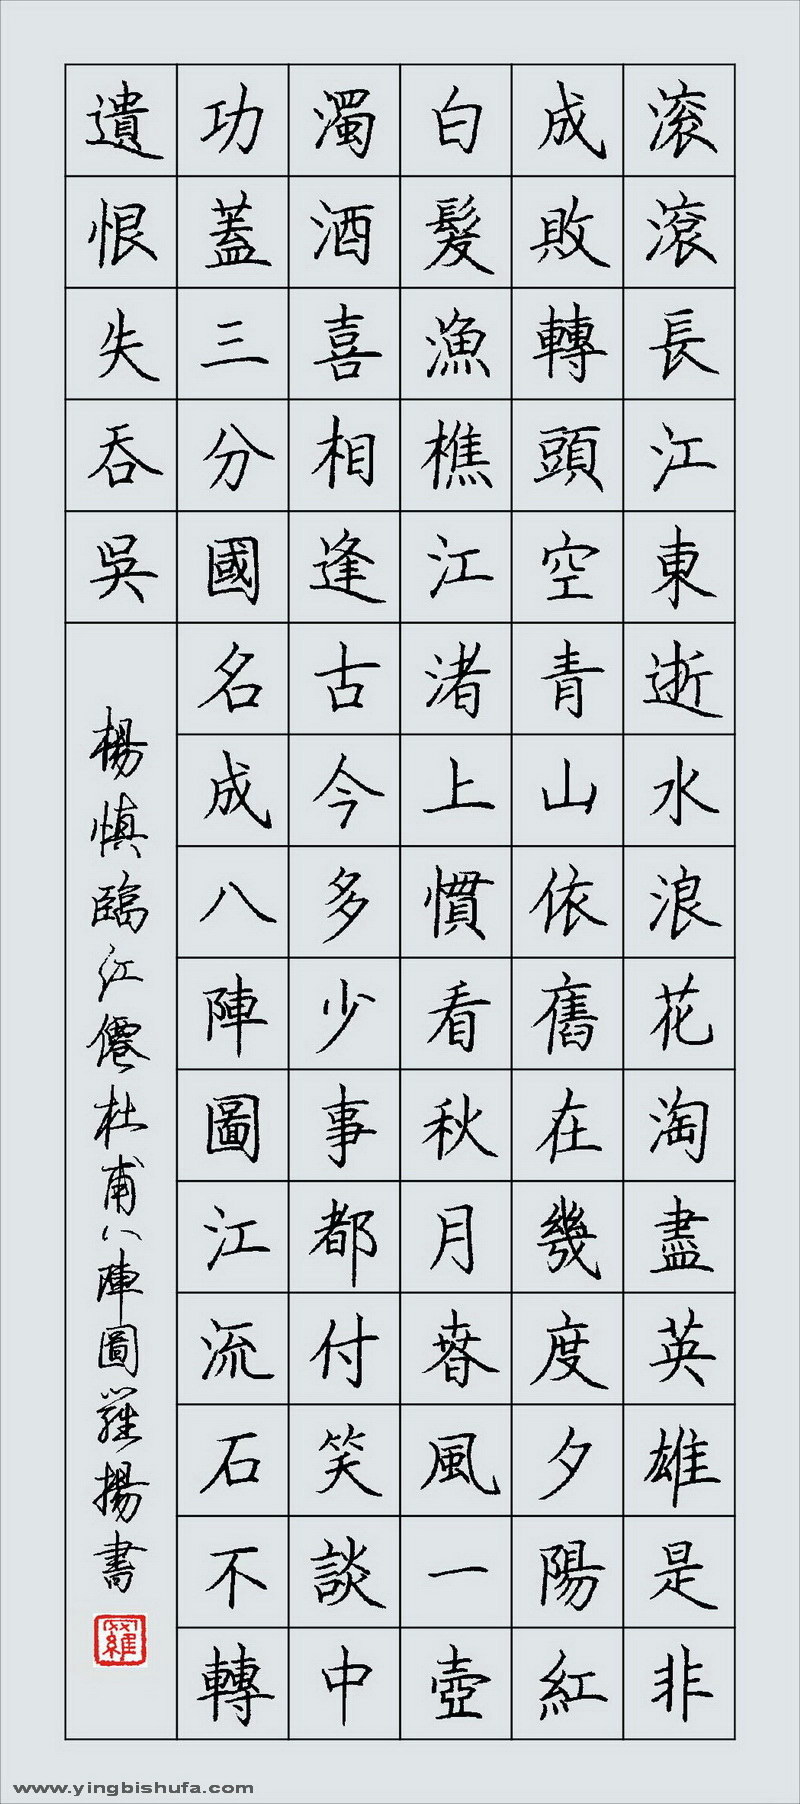 滚滾長江東逝水浪花淘盡英雄是非
成敗轉頭空青山依舊在幾度夕陽紅
白髮漁樵江渚上慣看秋月春風一壺
濁酒喜相逢古今多少事都付笑談中
功蓋三分國名成八陣圖江流石不轉
遺恨失吞吳
楊慎臨江僊杜甫八陣圖羅揚書
羅
www.yingbishufa.com